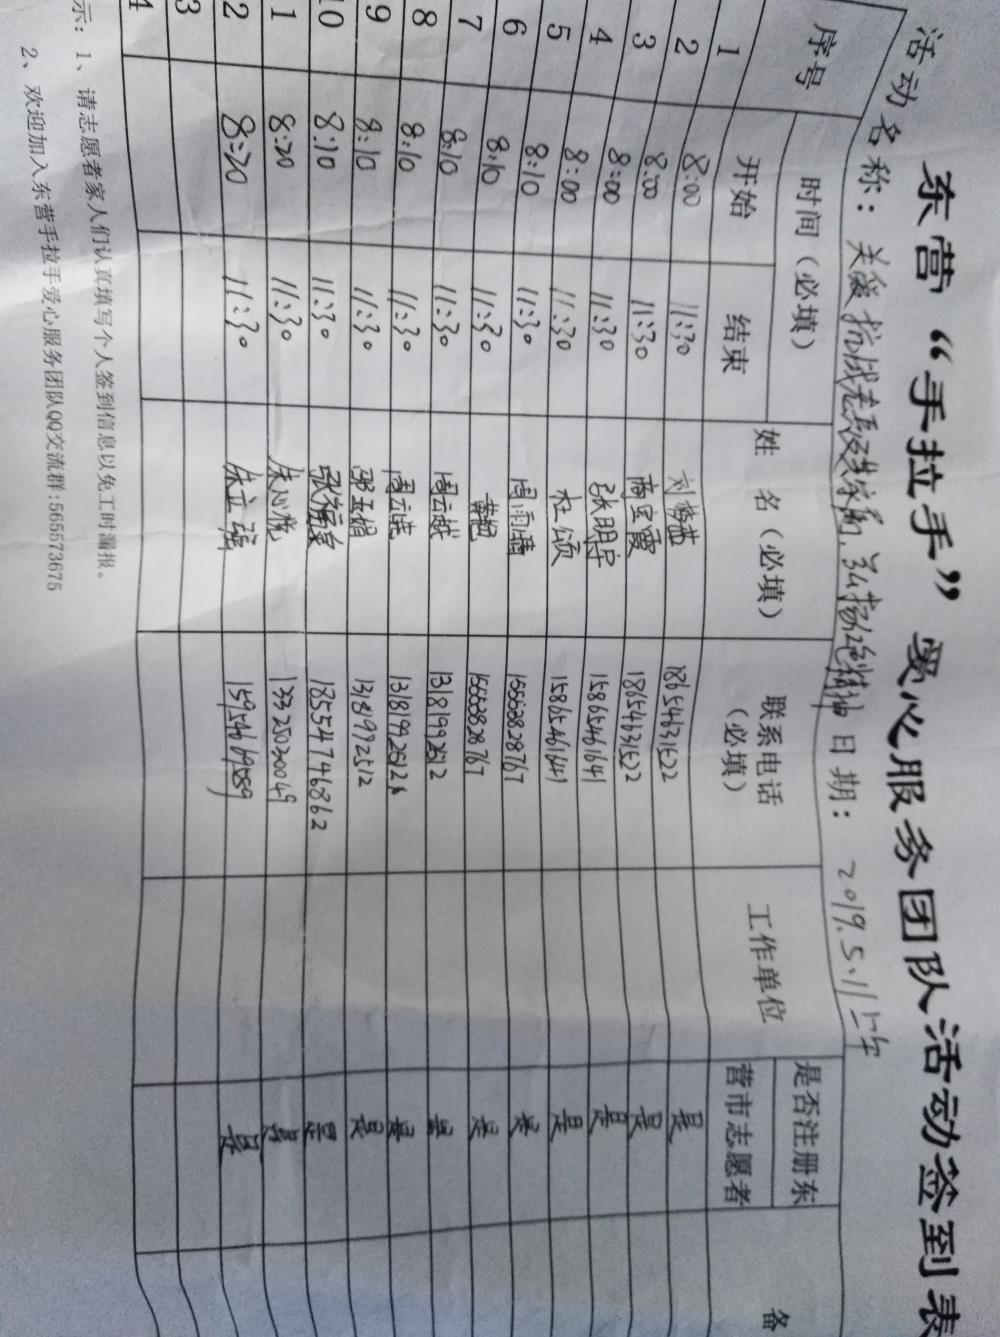 东营“手拉手”爱心服务团队活动签到表
活动名称：关爱抗战老兵及其家属，弘扬 精神 日期：2019.5.11上午
序号 时间（必填） 姓 名（必填） 联系电话（必填） 工作单位 是否注册东营市志愿者 备
开始 结束
1 8:00 11:30 刘 18654631522 是
2 8:00 11:30 霞 18654631522 是
3 8:00 11:30 张明宇 15865461641 是
4 8:00 11:30 杜颂 15865461641 是
5 8:10 11:30 周雨 15668282767 是
6 8:10 11:30 15668282767 是
7 8:10 11:30 周云越 13181992512 是
8 8:10 11:30 周云 13181992512 是
9 8:10 11:30 娟 13181992512 是
10 8:10 11:30 张 18554746862 是
1 8:20 11:30 朱心悦 13325030049 是
2 8:20 11:30 朱立 15954669589 是
3
4
示：1、请志愿者家人们认真填写个人签到信息以免工时漏报。
2、欢迎加入东营手拉手爱心服务团队QQ交流群:565573675